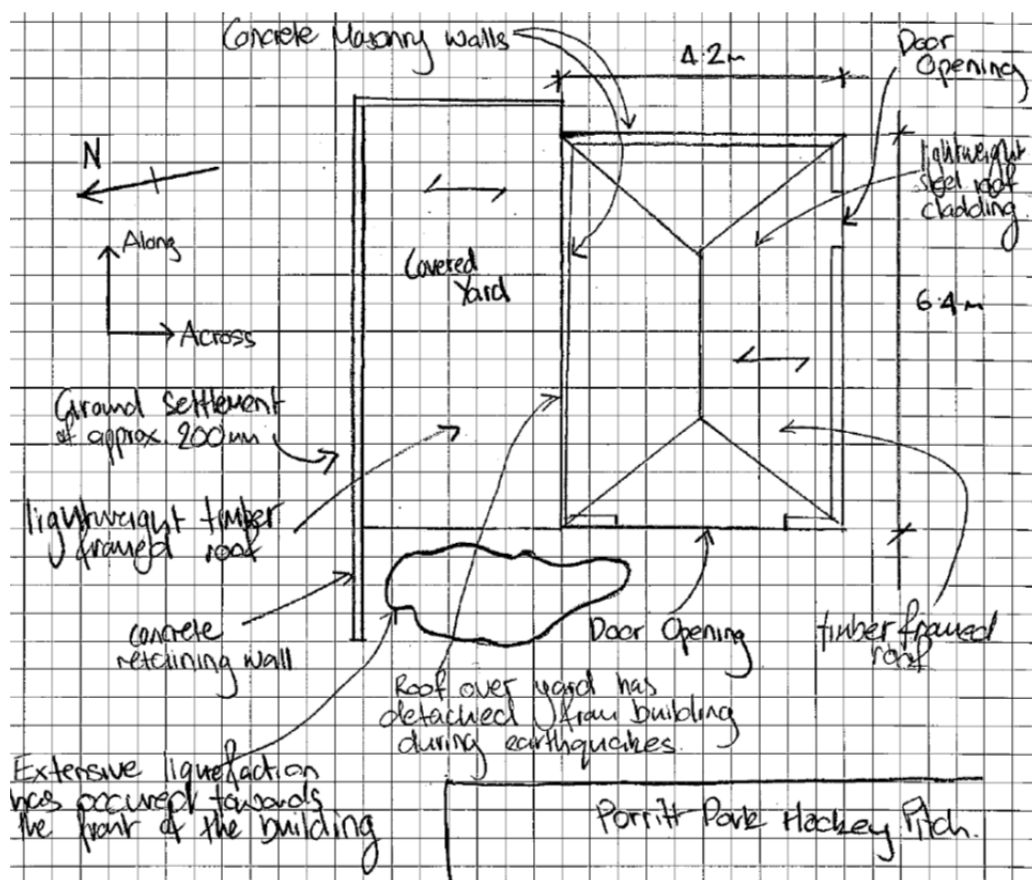 Concrete Masonry walls
4.2m
Door
Opening
N
lightweight
steel roof
cladding.
Along
Covered
Yard
6.4m
Across
Ground Settlement
of approx. 200mm
lightweight timber
framed roof
concrete
retaining wall
Door Opening
timber framed
roof
Roof over yard has
detached from building
during earthquakes.
Extensive liquefaction
has occured towards
the front of the building
Porritt Park Hockey Pitch.